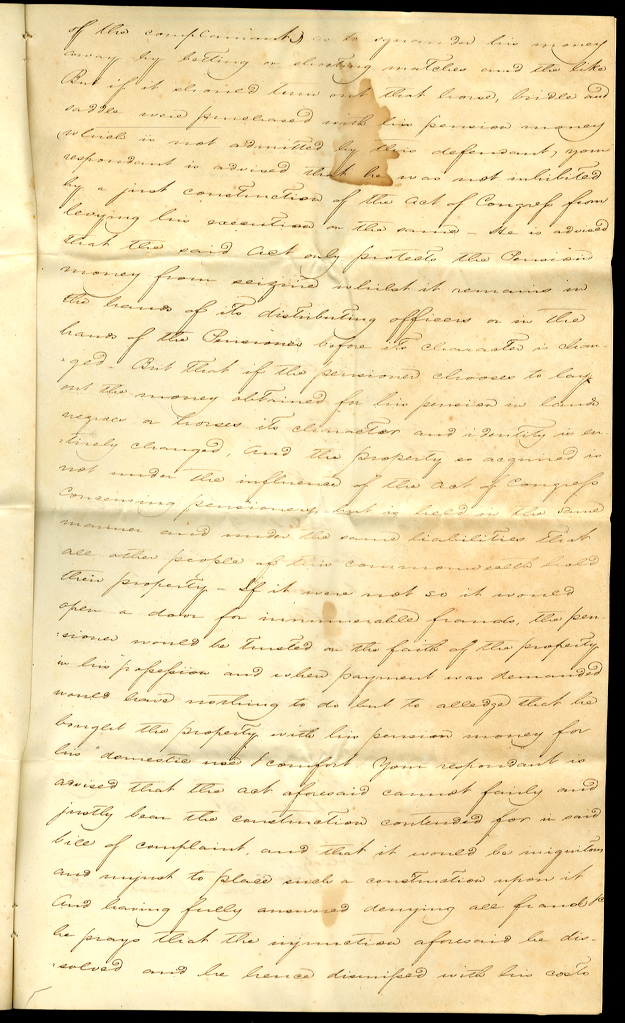 of the complainant) as to squander his money
away by betting or shooting matches and the like
But if it should turn out that horse, bridle and
saddle were purchased with his pension money
which is not admitted by this defendant, your
respondant is advised that he was not inhibited
by a just construction of the act of Congress from
levying his execution on the same – He is advised
that the said act only protects the Pension
money from seizure whilst it remains in
the hands of its distributing officers or in the
hands of the Pensioner before its character is chan-
-ged – But that if the pensioner chooses to lay
out the money obtained for his pension in lands
negroes or horses its character and identity is en-
tirely changed, and the property so acquired is
not under the influence of the act of Congress
concerning pensioners, but is held in the same
manner and under the same liabilities that
all other people of this commonwealth hold
their property – If it were not so it would
open a door for innumerable frauds, the pen-
-sioner would be trusted on the faith of the property
in his possession and when payment was demanded
would have nothing to do but to alledge that he
bought the property with his pension money for
his "domestic use & comfort" Your respondant is
advised that the act aforesaid cannot fairly and
justly bear the construction contended for in said
bill of complaint, and that it would be iniquitous
and unjust to place such a construction upon it
And having fully answered denying all fraud &c
he prays that the injunction aforesaid be dis-
-solved and he hence dismissed with his costs